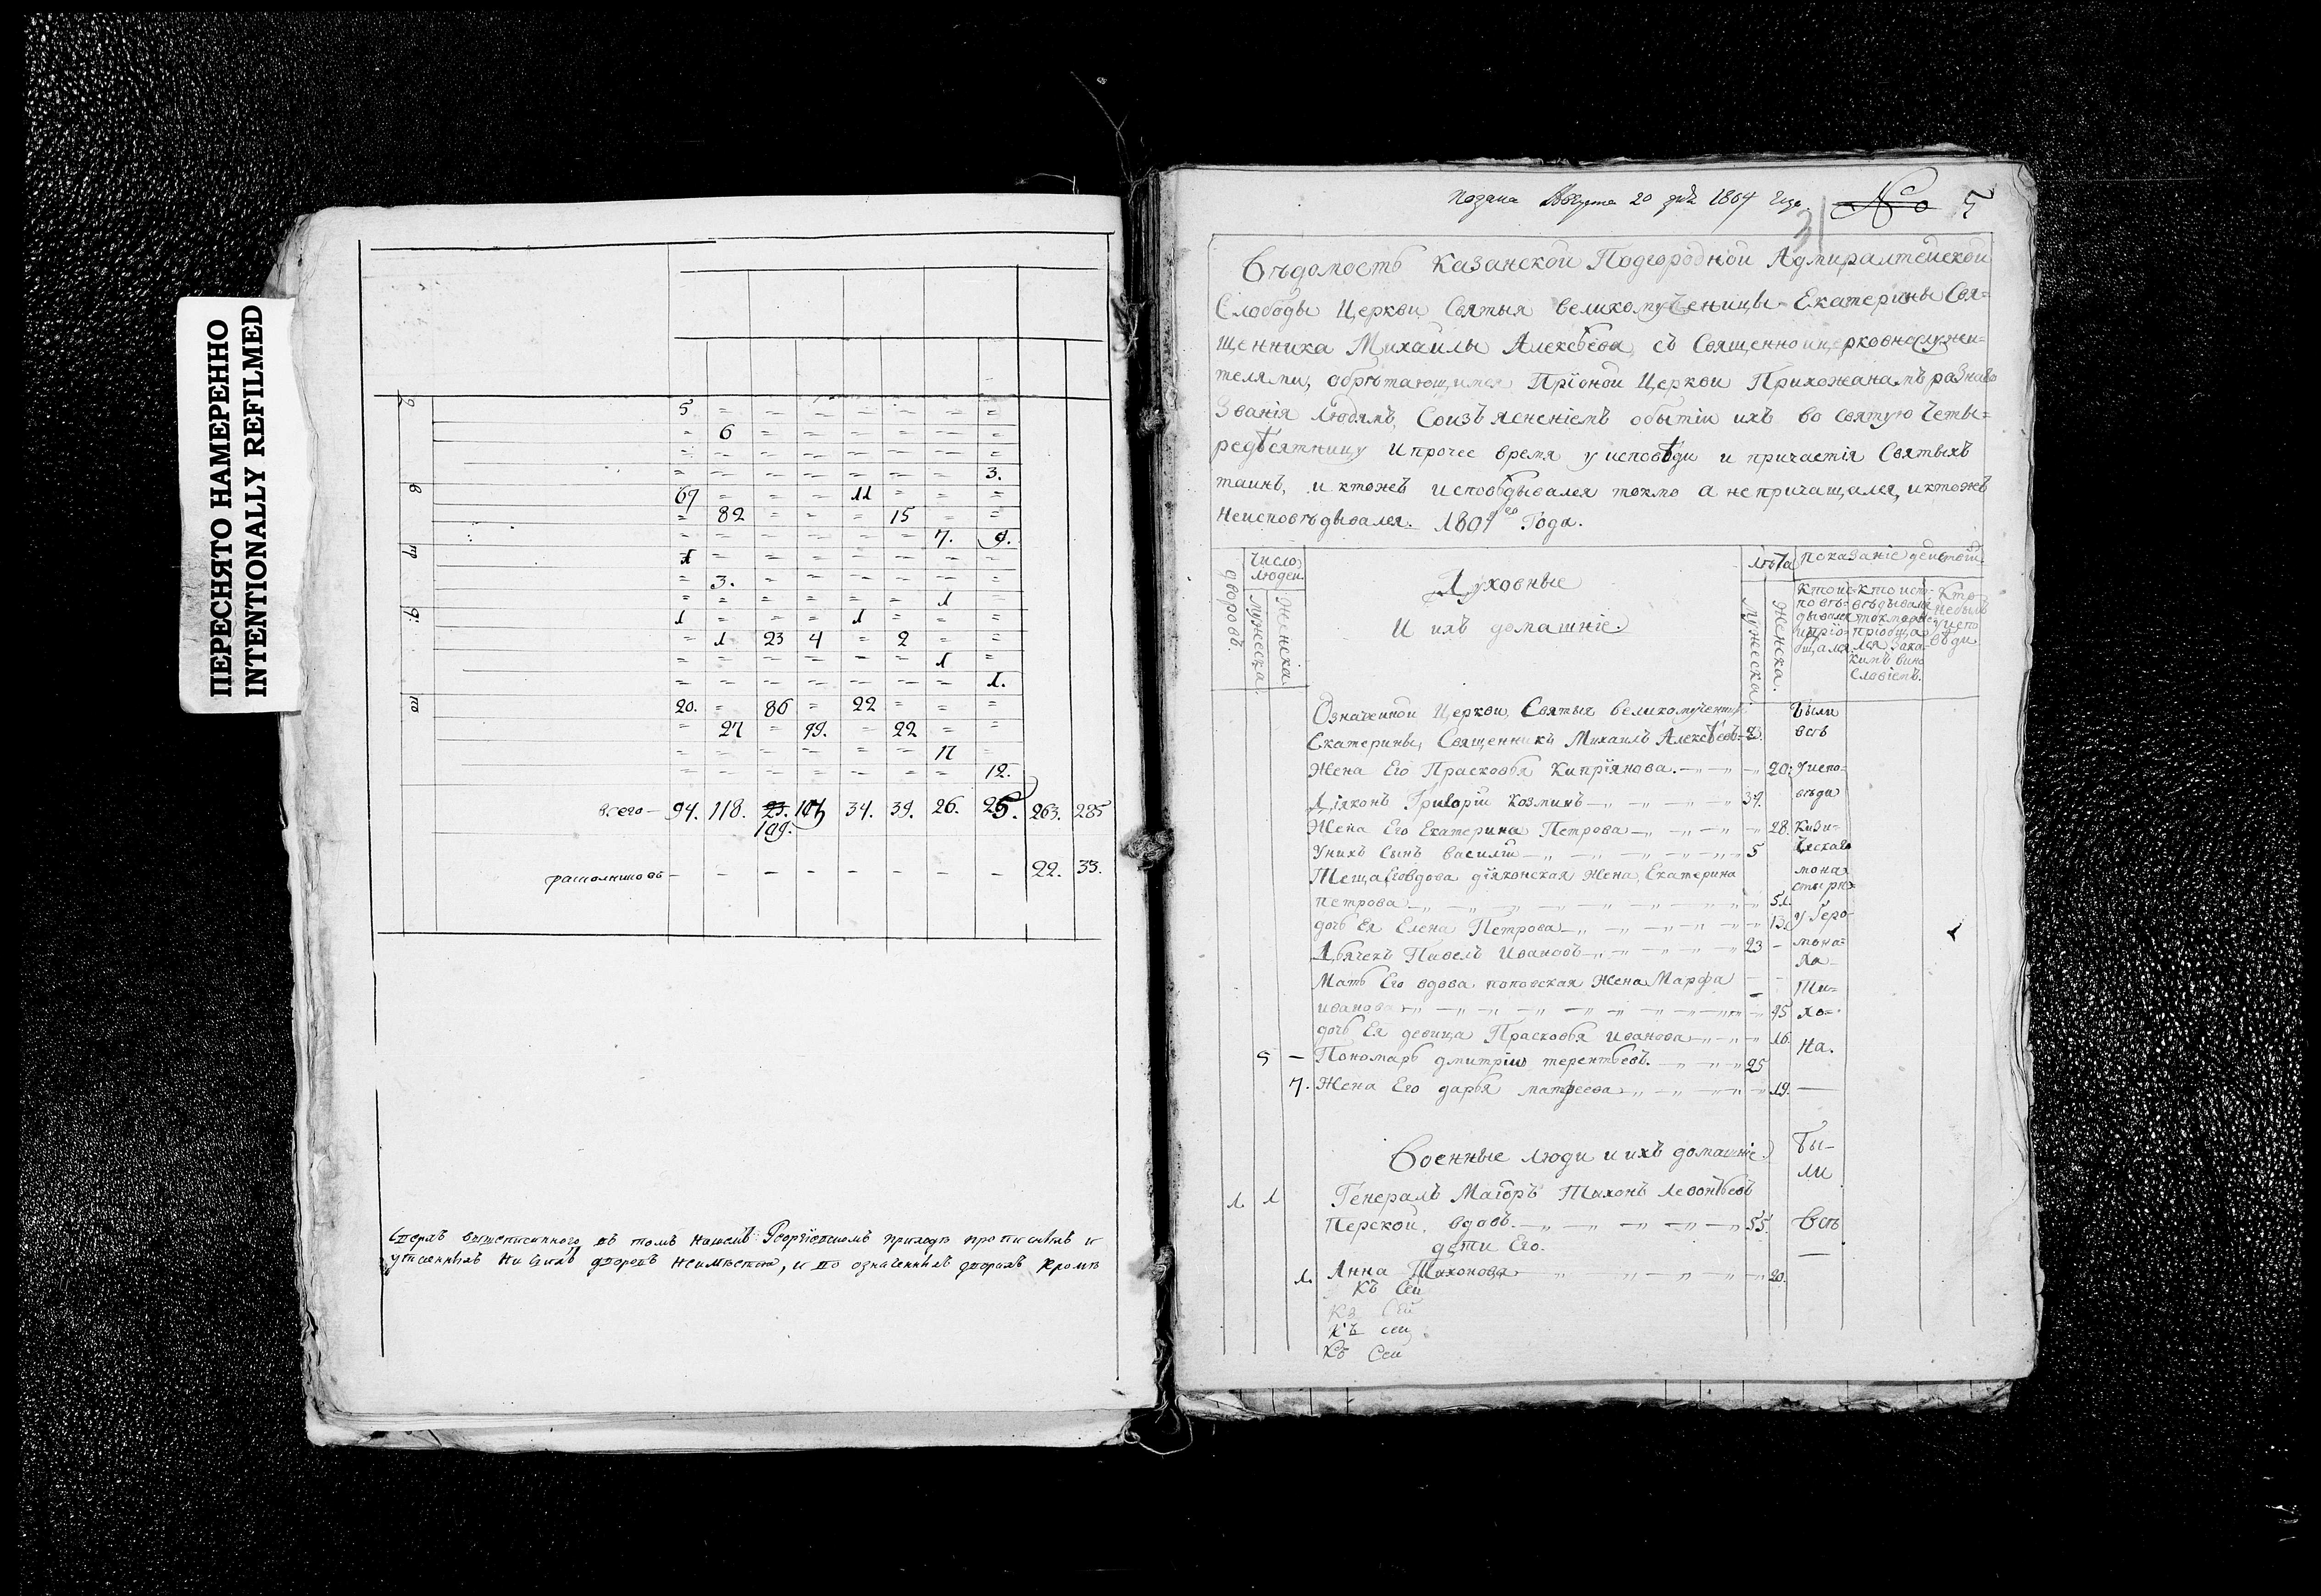 ПЕРЕСНЯТО НАМЕРЕННО
INTENTIONALLY REFILMED
5 = = = = = = =
= 6 = = = = = =
= = = = = = = =
= = = = = = = 3.
67 = = = 11 = = =
= 82 = = = 15 = =
= = = = = = 7. 9.
1 = = = = = = =
= 3. = = = = = =
= = = = = = 1
1 = = = 1 = = =
= 1 23 4 = 2 = =
= = = = = = 1 =
= = = = = = = 1.
20. = 86 = 22 = = =
= 27 = 99. = 22 = =
= = = = = = 17 =
= = = = = = = 12.
всего — 94. 118. 34. 39. 26. 25. 263. 285
109.
— — — — — — — — 22. 33.
Сверхъ вышеписанного въ томъ нашемъ Георгіевскомъ приходѣ
дворовъ неимѣется, и по означенныхъ дворахъ кромѣ
Подана Августа 20 дня 1804 Года. No 5
31
Вѣдомость Казанской Подгородной Адмиралтейской
Слободы Церкви Святыя великомученицы Екатерины Свя=
щенника Михаилы Алексѣева, съ Священноицерковнослужи=
телями, обрѣтающимся Пріоной Церкви Прихожанамъ разнаго
Званія Людямъ, Соизъясненіемъ обытіи ихъ во Святую Четы=
редѣсятницу и прочее время у исповѣди и причастія Святыхъ
таинъ, и ктожъ исповѣдывался токмо а непричащался, и ктожъ
Неисповѣдывался. 1804го Года.
дворовъ.
Число людей.
Мужеска.
Женска.
Духовные
И ихъ домашніе.
лѣта
Мужеска.
Женска.
показаніе действій
Кто ис=
повѣ=
дывался
и пріо=
бщался
Кто испо=
вѣдывался
токмо а не
пріобща
лся, зака=
кимъ вино
Словіемъ.
Кто
небылъ
уиспо
вѣди
Означенной Церкви, Святыя великомученицы Были
Екатерины, Священникъ Михаилъ Алексѣевъ всѣ
Жена Его Прасковья Кипріянова. — 20. Уиспо=
Діяконъ Григорій Козминъ — 34. вѣди
Жена Его Екатерина Петрова — 28. Кизи=
Унихъ Сынъ Василій — 5 ческаго
Теща Его вдова діяконская Жена, Екатерина мона=
Петрова — 51. стыря
дочь Ея Елена Петрова — 13. у Геро=
Дьячекъ Павелъ Ивановъ — 23 — мона=
ха
Мать Его вдова поповская Жена Марфа Ти=
Иванова — 45 хо=
дочь Ея девица Прасковья Иванова — 16 на.
5 — Пономарь Дмитрій терентьевъ. — 25
7. Жена Его дарья матфеева — 19. —
Военные люди и ихъ домашніе Бы-
ли
1. 1 Генералъ Маіоръ Тихонъ Левонтьевъ
Перской, вдовъ. — 55. Всѣ
дети Его. —
1. Анна Тихонова — 20.
Къ Сей
Къ Сей
Къ сей
Къ Сей